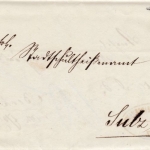 Stadtschultheißenamt
Sulz